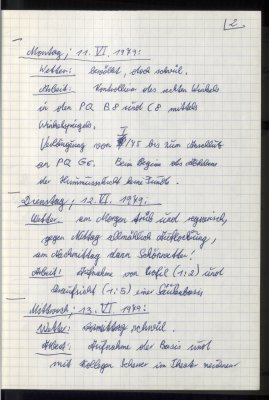 2
Montag, 11. VI 1979:
Wetter: bewölkt, doch schwül.
Arbeit: Kontrollieren des rechten Winkels
in den PQ B8 und C8 mittels
Winkelspiegels.
Verlängung von /45 bis zum Abschluß
an PQ G6. Beim Beginn des Abhebens
der Humusschicht keine Funde.
Dienstag, 12. VI. 1979:
Wetter: am Morgen trüb und regnerisch,
gegen Mittag allmählich Auflockerung,
am Nachmittag dann Schönwetter!
Arbeit: Aufnahme von Profil (1:2) und
Draufsicht (1:5) einer Säulenbasis
Mittwoch, 13. VI 1979:
Wetter: Vormittag schwül.
Arbeit: Aufnahme der Basis und
mit Kollegen im Theater